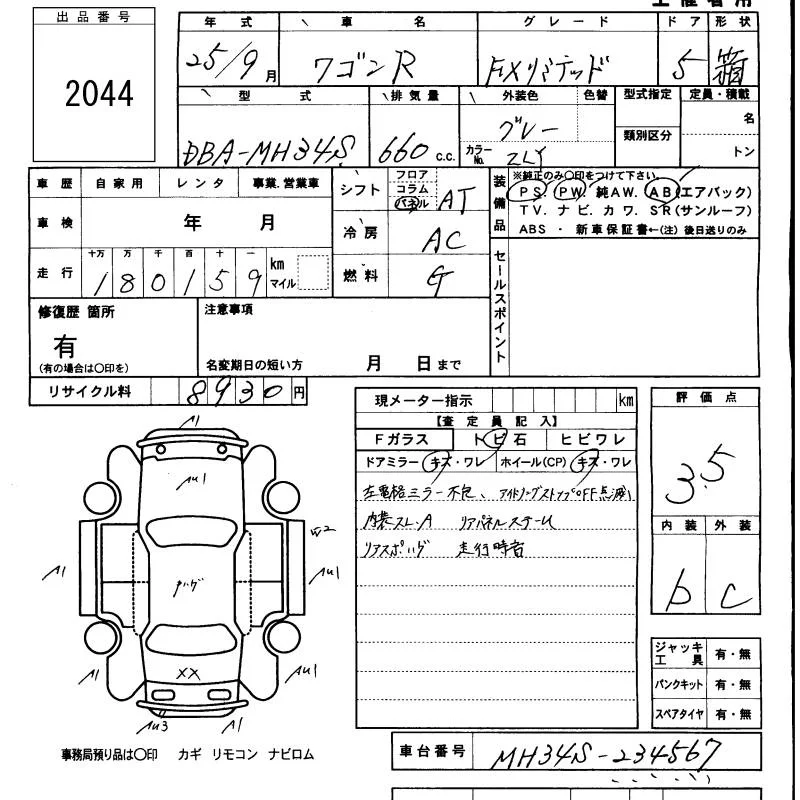 出品番号
2044
年式 車名 グレード ドア 形状
25/9月 ワゴンR FXリミテッド 5 箱
型式 排気量 外装色 色替 型式指定 定員・積載
DBA-MH34S 660 c.c. グレー カラーNo. ZLY 類別区分 名 トン
車歴 自家用 レンタ 事業.営業車
シフト フロア コラム パネル AT
装備品 ※純正のみ○印をつけて下さい。
PS. PW. 純AW. AB(エアバック)
TV. ナビ. カワ. SR(サンルーフ)
ABS ・ 新車保証書←(注) 後日送りのみ
車検 年 月
冷房 AC
走行 十万 万 千 百 十 一 km マイル
180159
燃料 G
セールスポイント
修復歴 箇所
有
(有の場合は○印を)
注意事項
名変期日の短い方 月 日まで
リサイクル料 8930円
現メーター指示 km
【査定員記入】
Fガラス トビ石 ヒビワレ
ドアミラー キズ・ワレ ホイール(CP) キズ・ワレ
左電格ミラー不良、アイドリングストップOFF点滅
内装スレ.A リアパネルスチール
走行時音
評価点
3.5
内装 外装
b C
A1
AU1
W2
A1
AU1
XX
A1
AU1
AU3
A1
ジャッキ工具 有・無
パンクキット 有・無
スペアタイヤ 有・無
事務局預り品は○印 カギ リモコン ナビロム
車台番号 MH34S-234567